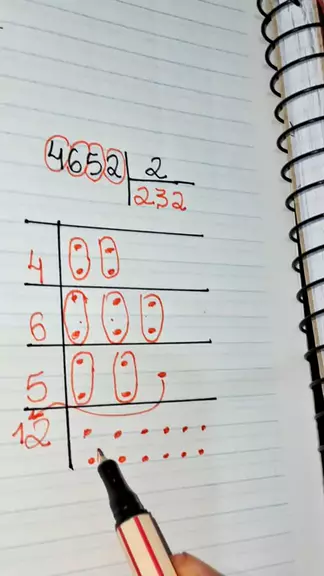 4652 2
232
4
6
5
12